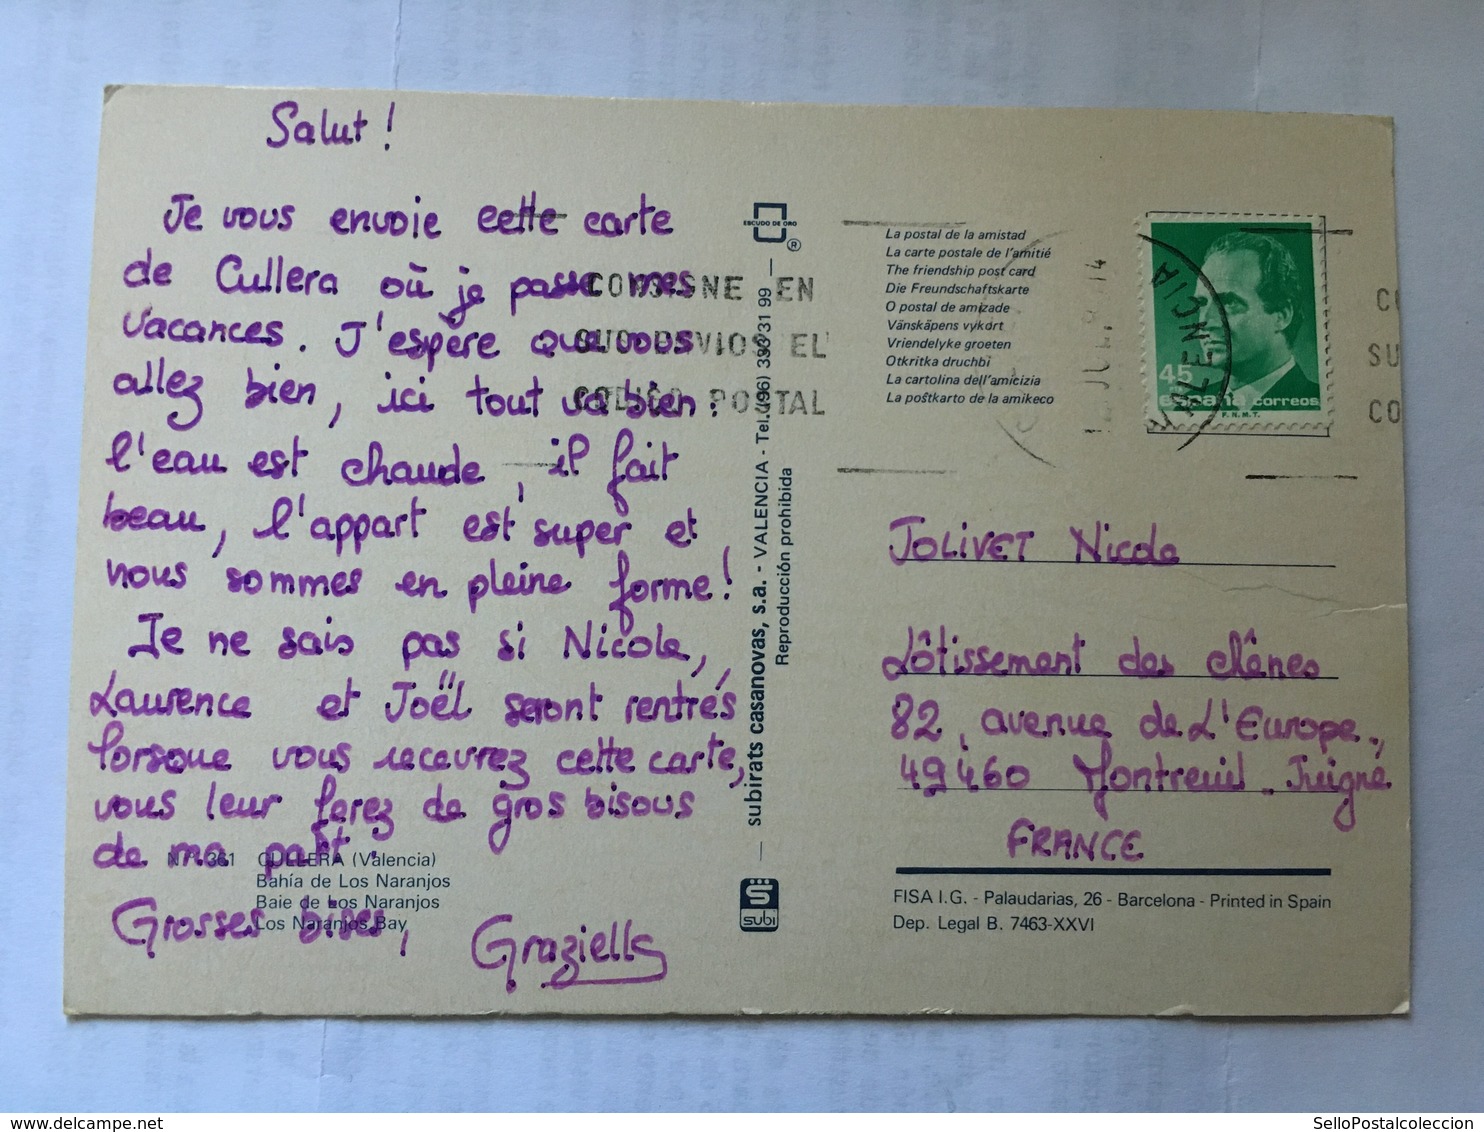 Salut !
Je vous envoie cette carte
de Cullera où je passe mes
vacances. J'espère que vous
allez bien, ici tout va bien :
l'eau est chaude, il fait
beau, l'appart est super et
nous sommes en pleine forme !
Je ne sais pas si Nicole,
Laurence et Joël seront rentrés
lorsque vous recevrez cette carte,
vous leur ferez de gros bisous
de ma part.
Grosses bises,
Graziella
N.º 361 CULLERA (Valencia)
Bahía de Los Naranjos
Baie de Los Naranjos
Los Naranjos Bay
ESCUDO DE ORO
®
subirats casanovas, s.a. - VALENCIA - Tel. (96) 390 31 99
Reproducción prohibida
subi
CONSIGNE EN
SUS ENVIOS EL
CODIGO POSTAL
La postal de la amistad
La carte postale de l'amitié
The friendship post card
Die Freundschaftskarte
O postal de amizade
Vänskäpens vykort
Vriendelyke groeten
Otkritka druchbi
La cartolina dell'amicizia
La poŝtkarto de la amikeco
VALENCIA
45
españa correos
F.N.M.T.
CO
SU
CO
JOLIVET Nicole
Lôtissement des chênes
82, avenue de L'Europe.,
49460 Montreuil-Juigné
FRANCE
FISA I.G. - Palaudarias, 26 - Barcelona - Printed in Spain
Dep. Legal B. 7463-XXVI
delcampe.net
SelloPostalcoleccion